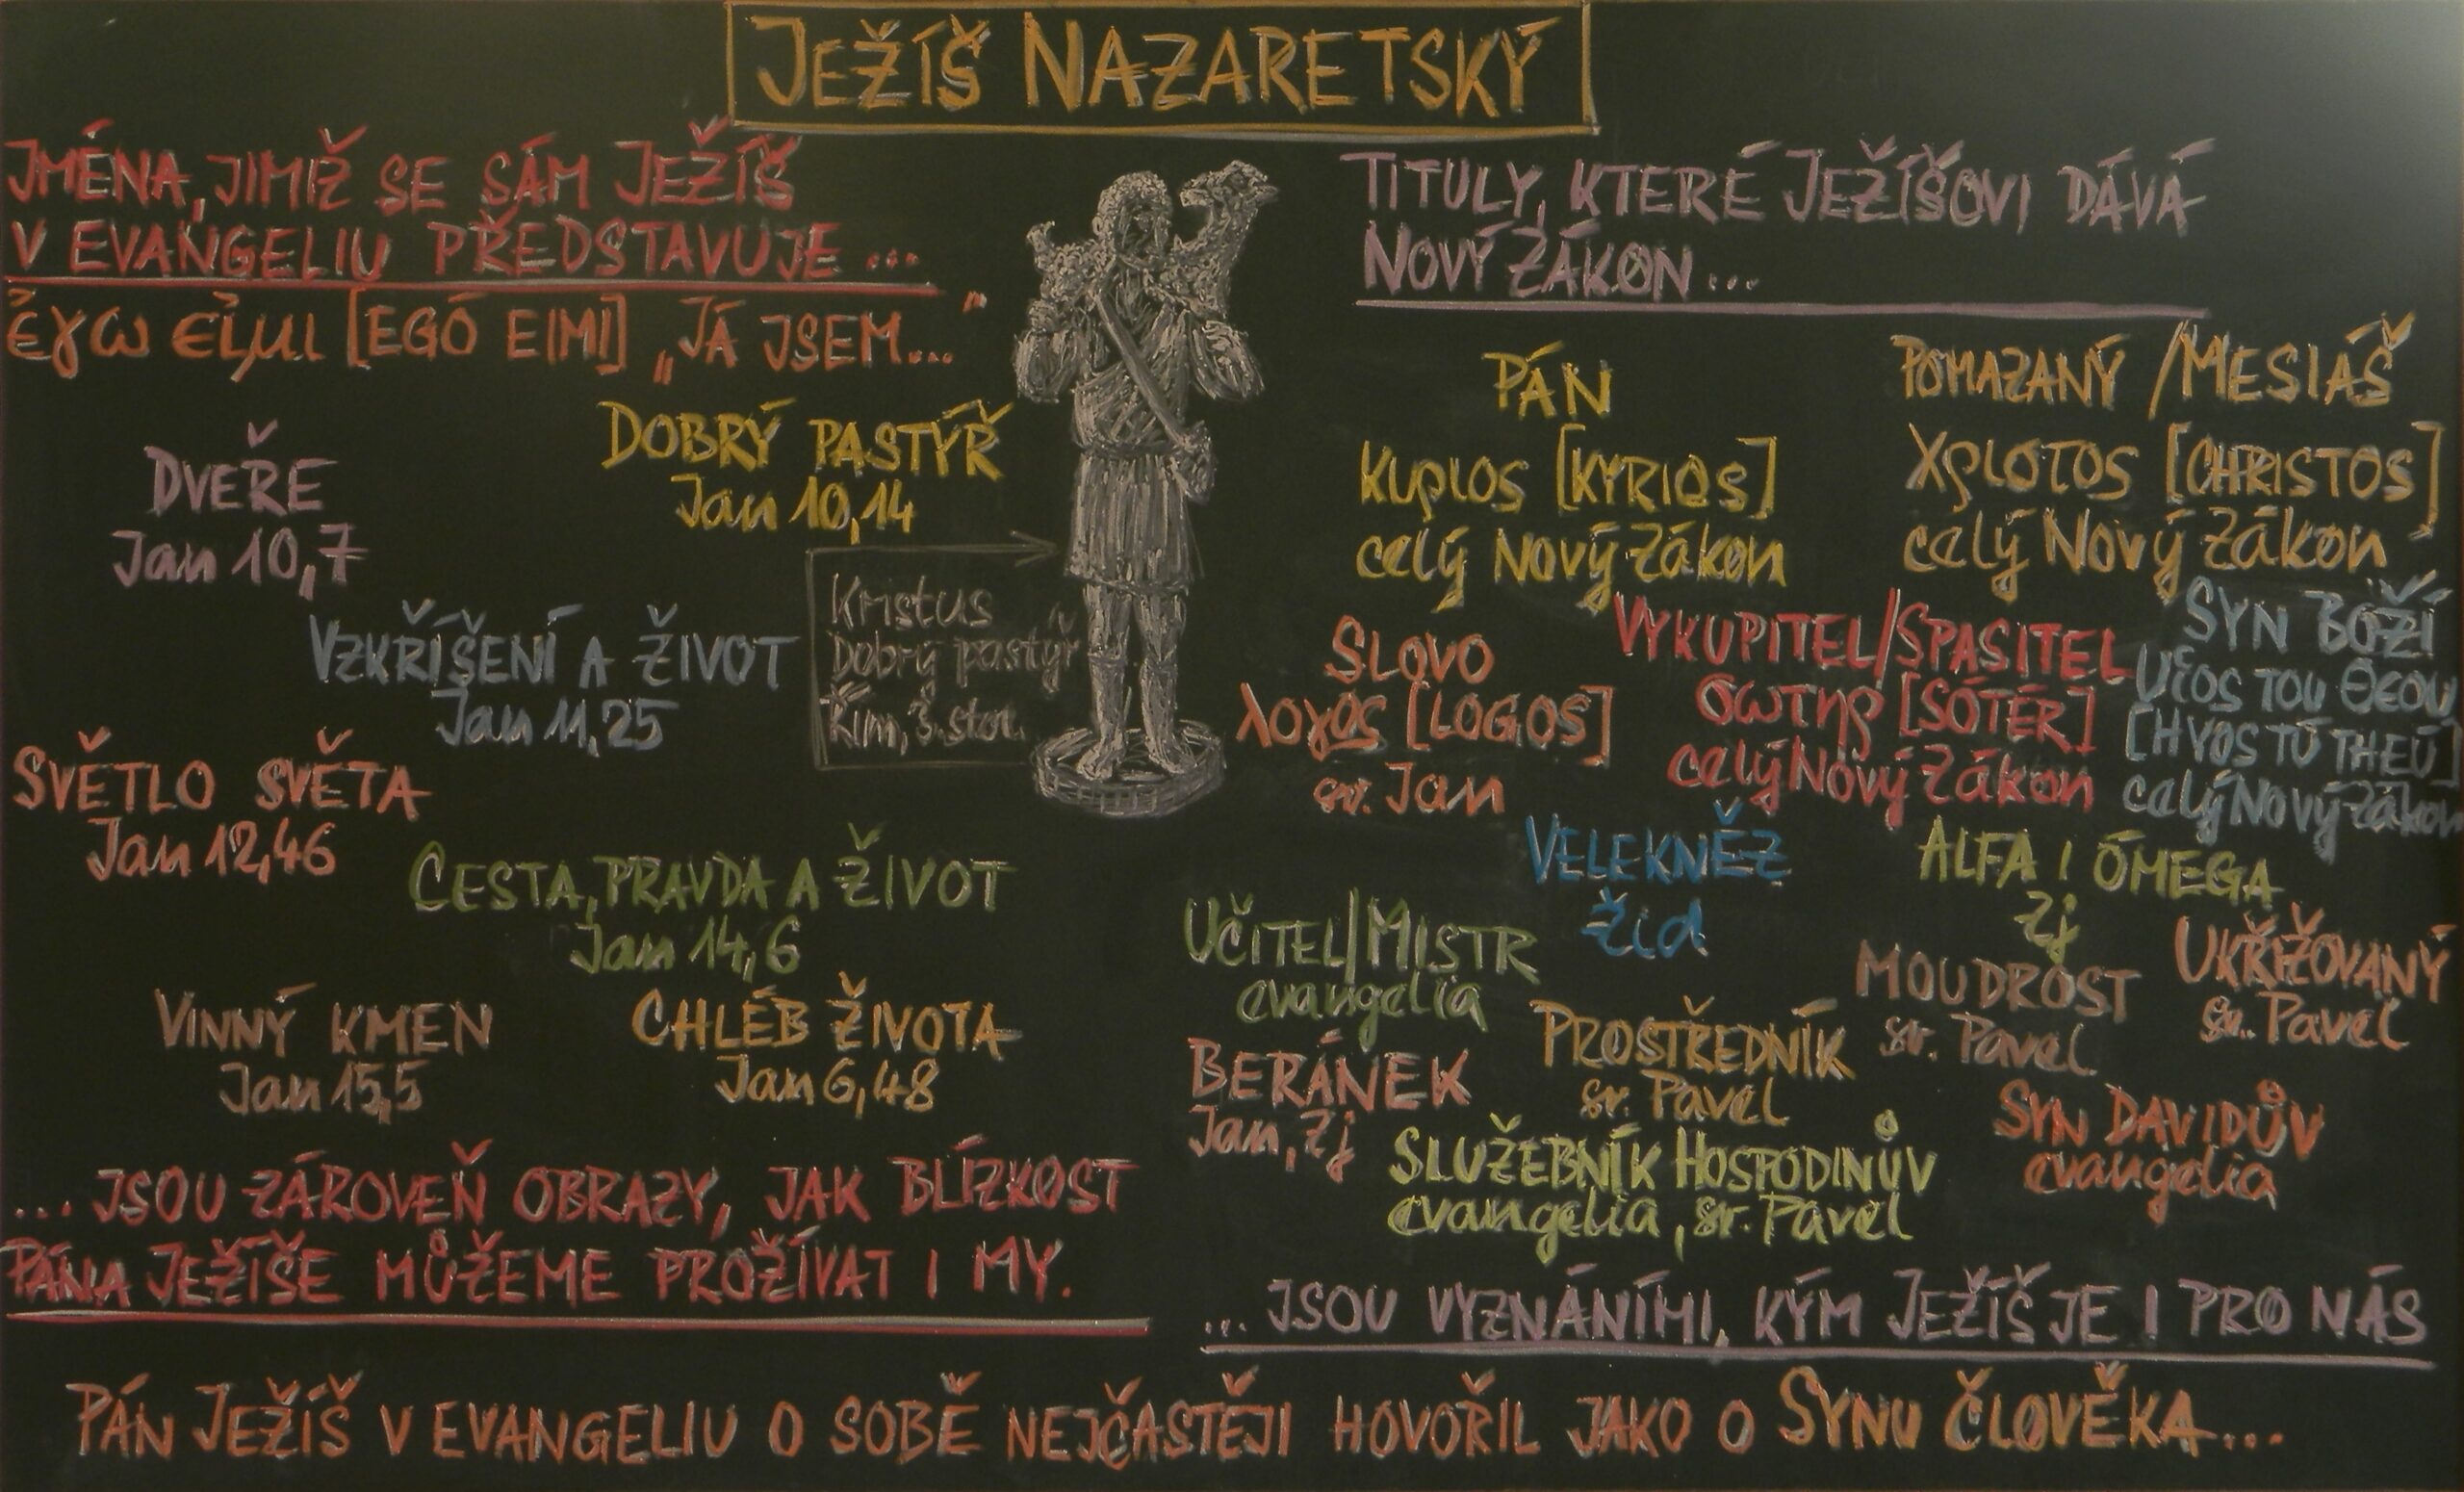 JEŽÍŠ NAZARETSKÝ
JMÉNA, JIMIŽ SE SÁM JEŽÍŠ
V EVANGELIU PŘEDSTAVUJE ...
ἐγω εἰμι [EGÓ EIMI] „JÁ JSEM..."
DVEŘE
Jan 10,7
DOBRÝ PASTÝŘ
Jan 10,14
VZKŘÍŠENÍ A ŽIVOT
Jan 11,25
Kristus
Dobrý pastýř
Řím, 3. stol.
SVĚTLO SVĚTA
Jan 12,46
CESTA, PRAVDA A ŽIVOT
Jan 14,6
VINNÝ KMEN
Jan 15,5
CHLÉB ŽIVOTA
Jan 6,48
... JSOU ZÁROVEŇ OBRAZY, JAK BLÍZKOST
PÁNA JEŽÍŠE MŮŽEME PROŽÍVAT I MY.
TITULY, KTERÉ JEŽÍŠOVI DÁVÁ
NOVÝ ZÁKON ...
PÁN
Κυριος [KYRIOS]
celý Nový Zákon
POMAZANÝ / MESIÁŠ
Χριστος [CHRISTOS]
celý Nový Zákon
SLOVO
λογος [LOGOS]
sv. Jan
VYKUPITEL/SPASITEL
σωτηρ [SÓTÉR]
celý Nový Zákon
SYN BOŽÍ
Υἱος του Θεου
[HYOS TÚ THEÚ]
celý Nový Zákon
VELEKNĚZ
Žid
ALFA I ÓMEGA
Zj
UČITEL/MISTR
evangelia
MOUDROST
sv. Pavel
UKŘIŽOVANÝ
sv. Pavel
BERÁNEK
Jan, Zj
PROSTŘEDNÍK
sv. Pavel
SLUŽEBNÍK HOSPODINŮV
evangelia, sv. Pavel
SYN DAVIDŮV
evangelia
... JSOU VYZNÁNÍMI, KÝM JEŽÍŠ JE I PRO NÁS
PÁN JEŽÍŠ V EVANGELIU O SOBĚ NEJČASTĚJI HOVOŘIL JAKO O SYNU ČLOVĚKA...